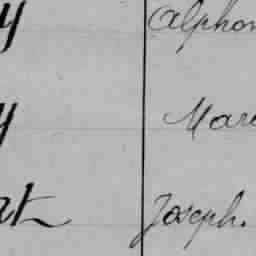 y Alphon
y Mar
at Joseph.